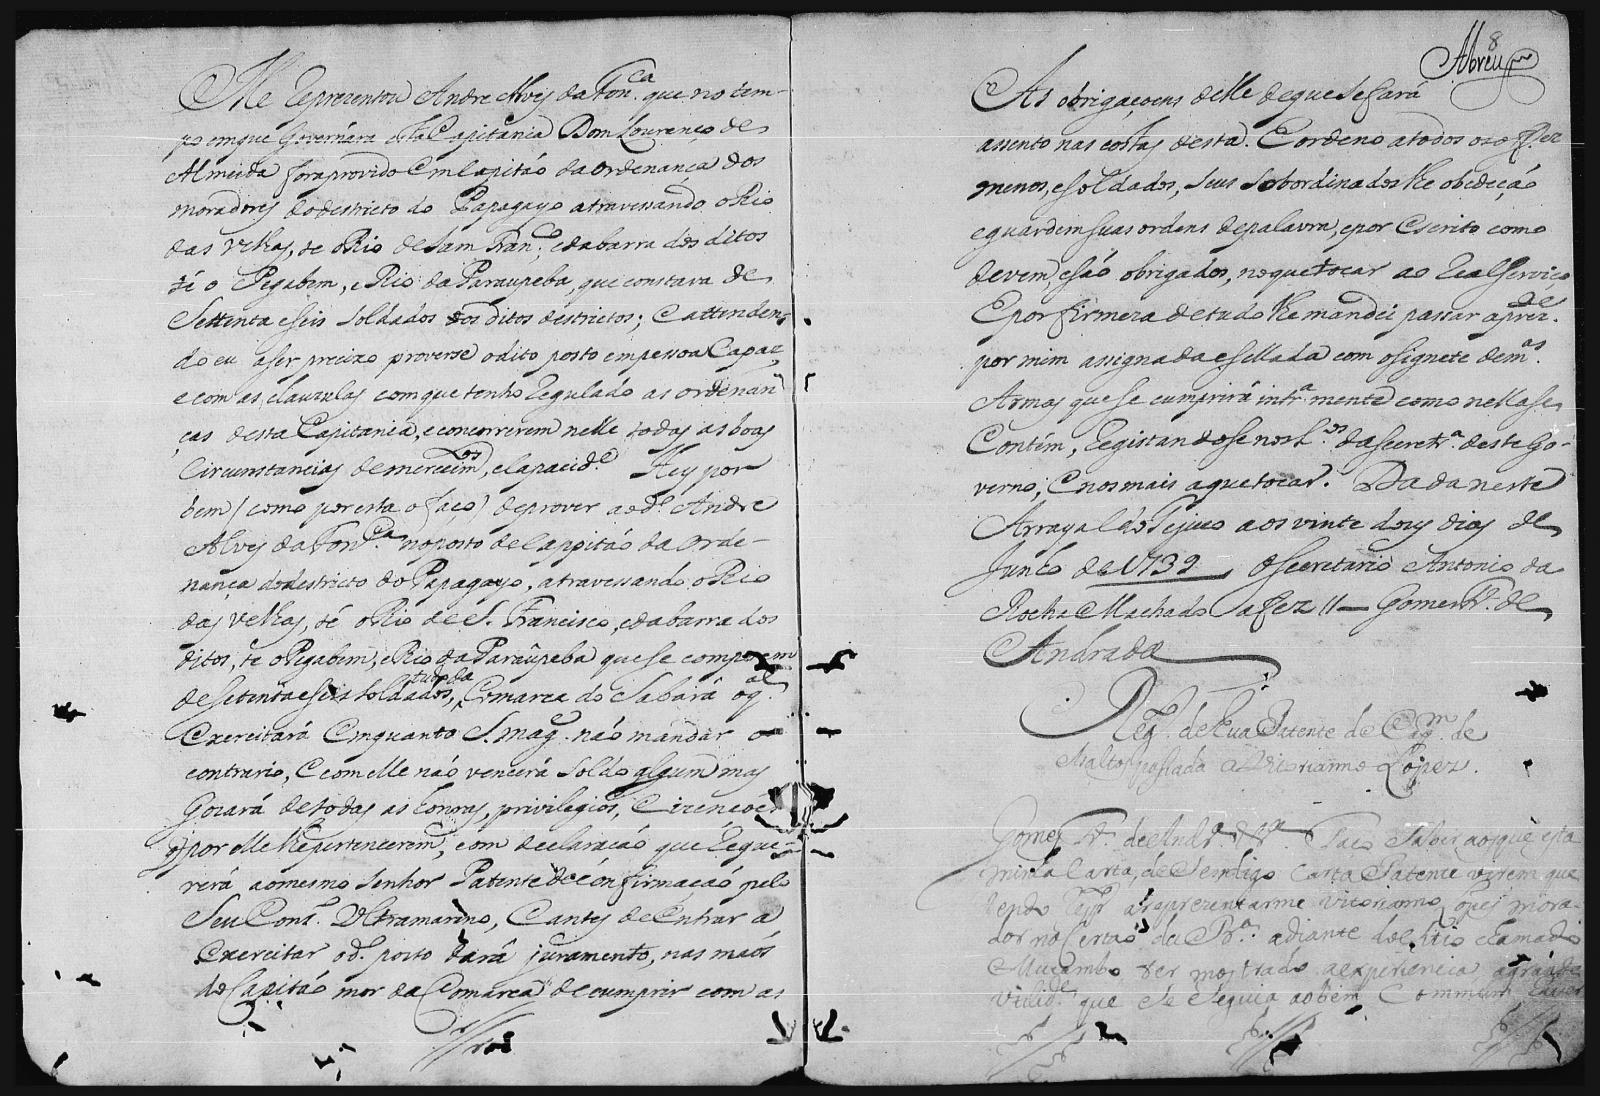 Me reprezentou Andre Alveˢ da Fonᶜᵃ. que no tem-
po em que Governára esta Capitania Dom Lourenço de
Almeida fora provido em Capitaõ da ordenança dos
moradores do destricto do Papagayo atravessando o Rio
das velhas, té o Rio de Sam Franᶜᵒ. e da barra dos ditos
té o Pegabem, e Rio da Paraupeba, que constava de
Settenta e seis soldados dos ditos destrictos; E attenden-
do eu a ser precizo proverse o dito posto em pessoa Capaz
e com as clauzulas com que tenho regulado as ordenan
ças desta Capitania, e concorrerem nelle todas as boas
circunstancias de merecimᵗᵒˢ, e capacidᵉ. Hey por
bem (como por esta o faço) de prover ao dº. Andre
Alves da Fonᶜᵃ. no posto de Cappitaõ da Orde-
nança do destricto do Papagayo, atravessando o Rio
das velhas, té o Rio de S. Francisco, e da barra dos
ditos, te o Pegabem, e Rio da Paraûpeba que se compoem
de setenta e seis soldados, tudo da Comarca do Sabará o qᵃˡ.
Exercitará Emquanto S. Magᵉ. naõ mandar o
contrario, E com elle naõ vencerá soldo algum mas
Gozará de todas as honras, privilegios, E izençoês
q̃ por elle lhe pertencerem, com declaraçaõ que reque-
rerá ao mesmo Senhor Patente de confirmaçaõ pelo
Seu Consº. Ultramarino, E antes de Entrar a
Exercitar o dº. posto dará juramento, nas maõs
do Capitaõ mor da Comarca de cumprir com as
Abreu
8
As obrigaçoens delle de que se fará
assento nas costas desta. E ordeno a todos os offᵉˢ
menos, e soldados, seus subordinados lhe obedeçaõ
e guardem suas ordens de palavra, e por Escrito como
devem, e saõ obrigados, no que tocar ao Real Serviço
E por firmeza de tudo lhe mandei passar a prezᵗᵉ.
por mim assignada e sellada com o signete de mᵃˢ.
Armas que se cumprirá intrᵃmente como nella se
Contém, Registandose nos Lᵒˢ. da Secretrᵃ. deste Go-
verno, E nos mais a que tocar. Dada neste
Arrayal do Tejuco aos vinte dous dias de
Junho de 1739 O Secretario Antonio da
Rocha Machado a fez // Gomes Frᵉ. de
Andrada
Regº. de hua Patente de Capᵐ. de
Malto passada a Vitorianno Lopez.
Gomes Frᵉ. de Andrᵃ. &ᶜᵃ. Faço Saber aos que esta
minha Carta, de Sem digo Carta Patente virem que
tendo respᵗᵒ a reprezentarme Vitorianno Lopes mora-
dor no Certaõ da Bᵃ. adiante do citio chamado
Mucambo ter mostrado a experiencia a grande
utilidᵉ. que se seguia ao bem Commum